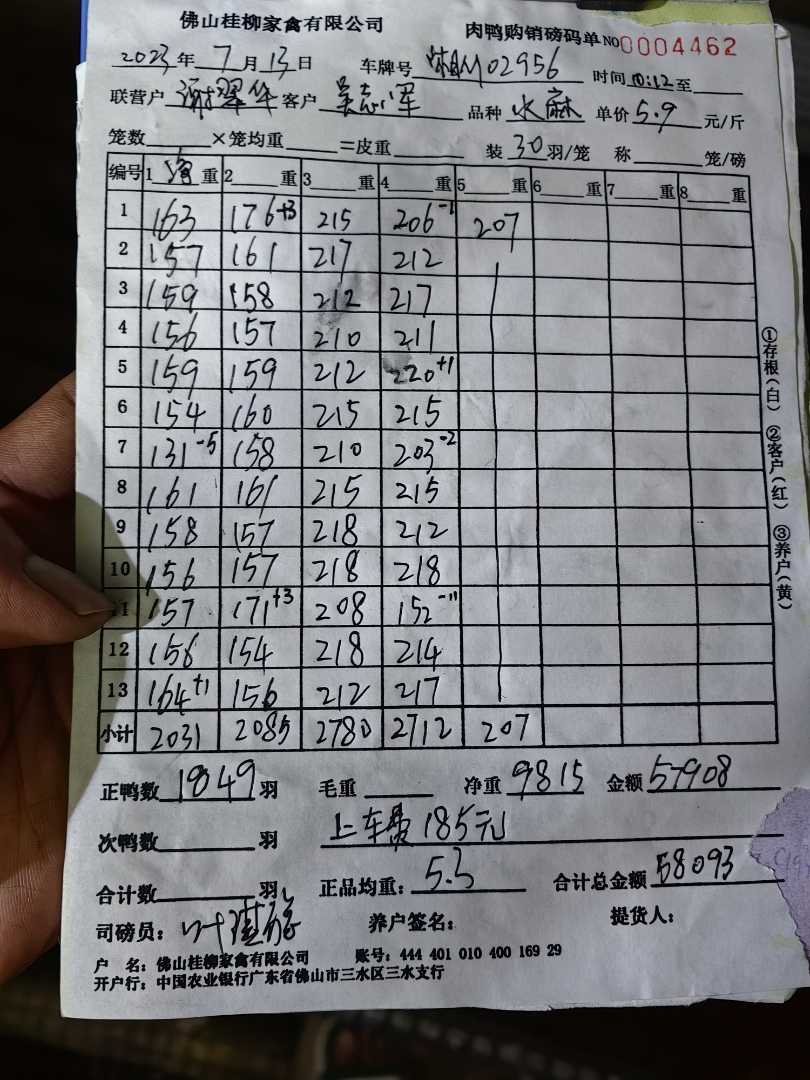 佛山桂柳家禽有限公司 肉鸭购销磅码单 NO 0004462
2023年 7月 13日 车牌号 02956 时间 10:12 至
联营户 谢翠华 客户 吴志军 品种 水麻 单价 5.9 元/斤
笼数 ×笼均重 =皮重 装 30 羽/笼 称 笼/磅
编号 1 净 重 2 重 3 重 4 重 5 重 6 重 7 重 8 重
1 163 176+3 215 206-1 207
2 157 161 217 212
3 159 158 212 217
4 156 157 210 211
5 159 159 212 220+1
6 154 160 215 215
7 131-5 158 210 203-2
8 161 161 215 215
9 158 157 218 212
10 156 157 218 218
11 157 171+3 208 152-11
12 156 154 218 214
13 164+1 156 212 217
小计 2031 2085 2780 2712 207
正鸭数 1849 羽 毛重 净重 9815 金额 57908
次鸭数 羽 上车费185元
合计数 羽 正品均重: 5.3 合计总金额 58093
司磅员: 叶 养户签名: 提货人:
户 名: 佛山桂柳家禽有限公司 账号: 444 401 010 400 169 29
开户行: 中国农业银行广东省佛山市三水区三水支行
①存根(白) ②客户(红) ③养户(黄)